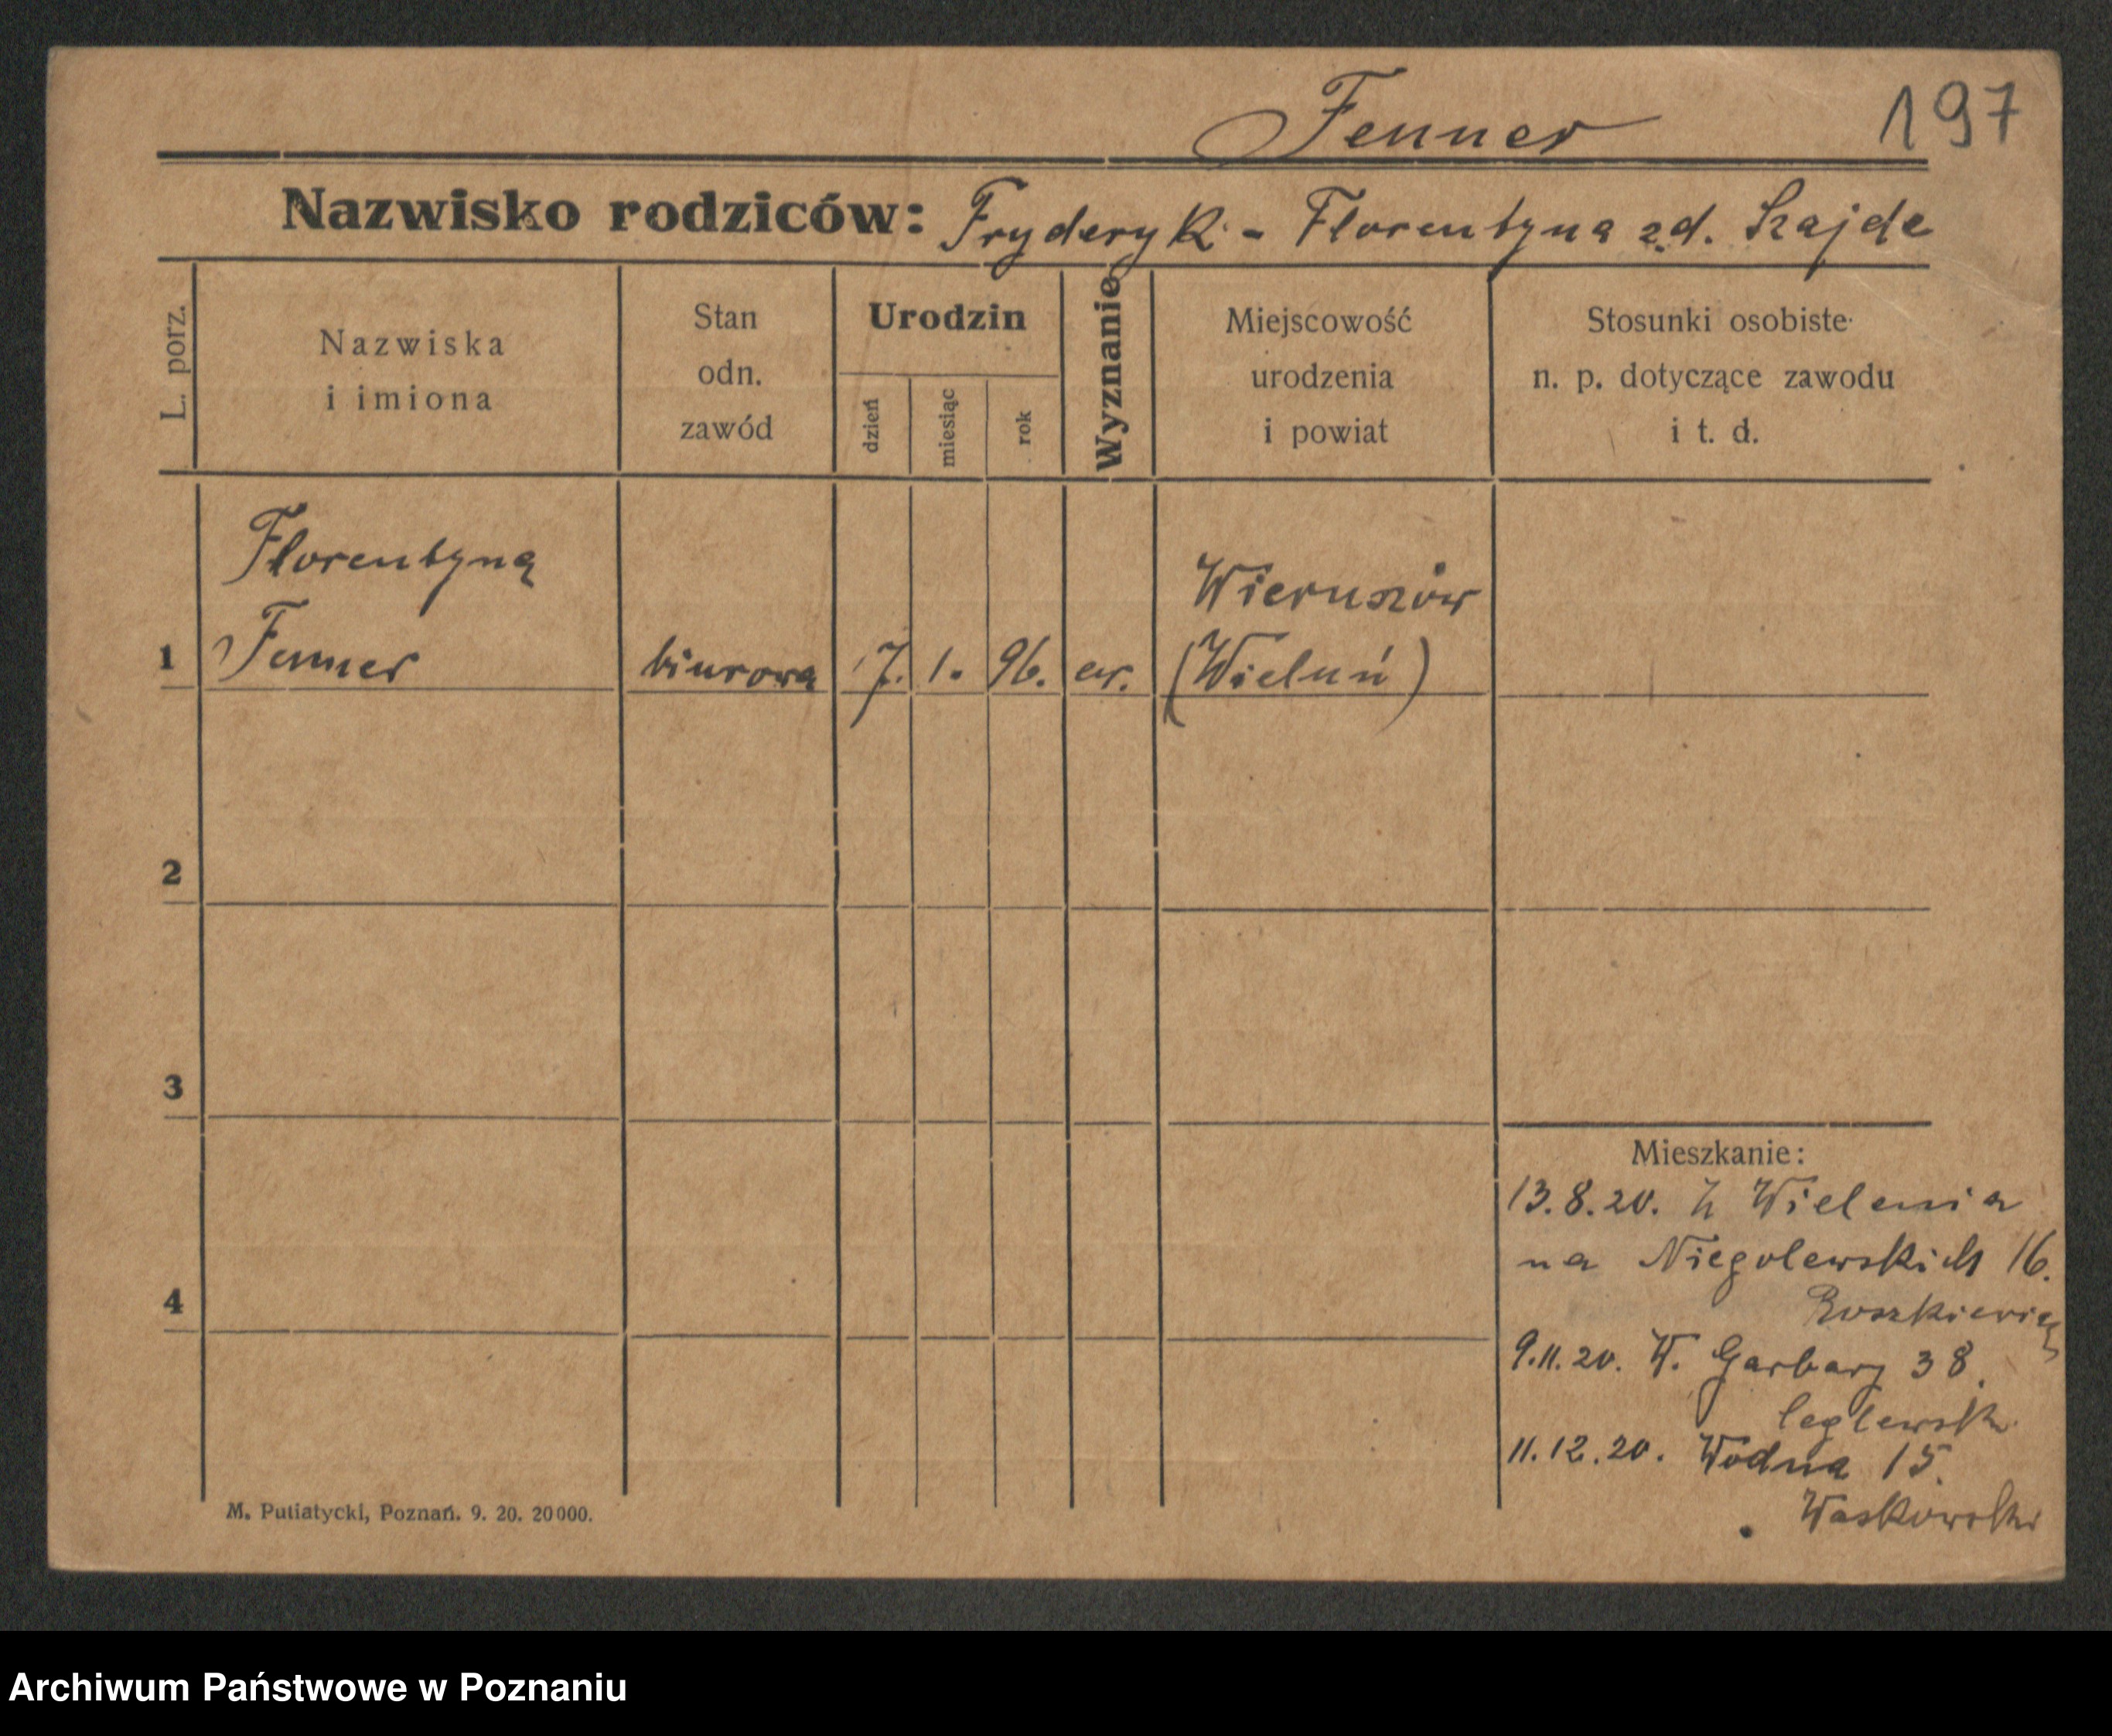 Fenner 197
Nazwisko rodziców: Fryderyk - Florentyna zd. Szajde
L. porz.
Nazwiska
i imiona
Stan
odn.
zawód
Urodzin
dzień
miesiąc
rok
Wyznanie
Miejscowość
urodzenia
i powiat
Stosunki osobiste
n. p. dotyczące zawodu
i t. d.
Florentyna
Wieruszów
1 Fenner biurowa 7. 1. 96. ew. (Wieluń)
2
3
Mieszkanie:
13.8.20. Z Wielenia
na Niegolewskich 16.
4
9.11.20. W. Garbary 38.
11.12.20. Wodna 15.
Waskowski
M. Putiatycki, Poznań. 9. 20. 20000.
Archiwum Państwowe w Poznaniu